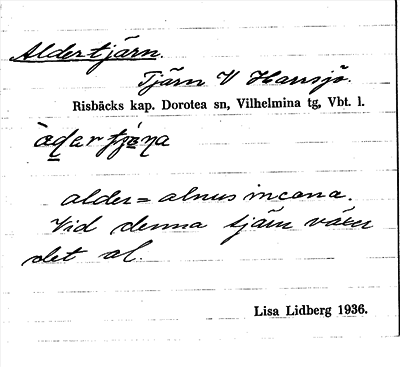 Aldertjärn.
Tjärn V Hansjö.
Risbäcks kap. Dorotea sn, Vilhelmina tg, Vbt. l.
alder = alnus incana.
Vid denna tjärn växer
det al.
Lisa Lidberg 1936.